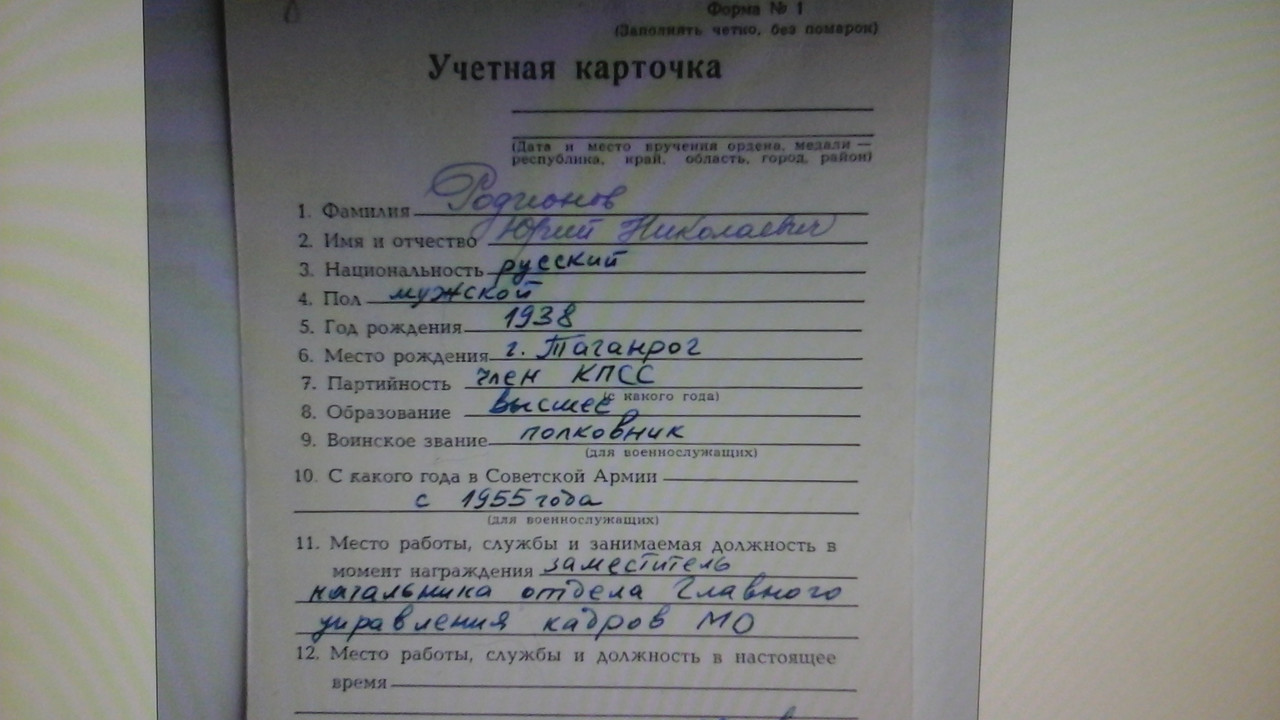 Форма № 1
(Заполнять четко, без помарок)
Учетная карточка
(Дата и место вручения ордена, медали —
республика, край, область, город, район)
1. Фамилия Родионов
2. Имя и отчество Юрий Николаевич
3. Национальность русский
4. Пол мужской
5. Год рождения 1938
6. Место рождения г. Таганрог
7. Партийность член КПСС
(с какого года)
8. Образование высшее
9. Воинское звание полковник
(для военнослужащих)
10. С какого года в Советской Армии
с 1955 года
(для военнослужащих)
11. Место работы, службы и занимаемая должность в
момент награждения заместитель
начальника отдела Главного
управления кадров МО
12. Место работы, службы и должность в настоящее
время